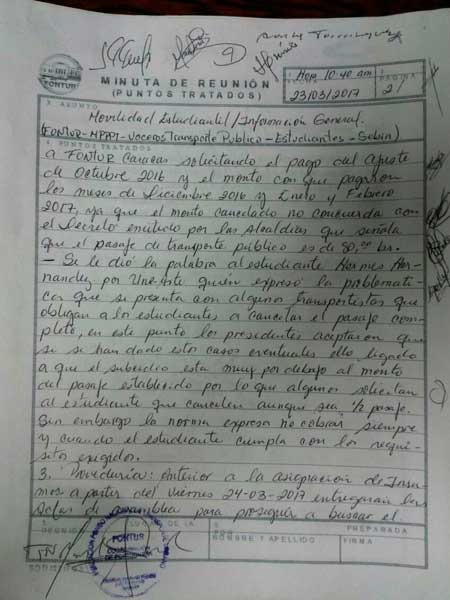 FONTUR
MINUTA DE REUNIÓN
(PUNTOS TRATADOS)
Hop 10:40 am
23/03/2017
PAGINA
2/
3. ASUNTO
Movilidad Estudiantil/Información General.
(FONTUR-MPPT-Voceros Transporte Publico-Estudiantes-Sebin)
4. PUNTOS TRATADOS
a FONTUR Caracas solicitando el pago del ajuste
de Octubre 2016 y el monto con que pagaron
los meses de Diciembre 2016 y Enero y Febrero
2017, ya que el monto cancelado no concuerda con
el Decreto emitido por las Alcaldias que señala
que el pasaje de transporte público es de 80,00 bs.
- Se le dió la palabra al estudiante Hermes Her-
nandez por UneArte quién expresó la problemati-
ca que se presenta con algunos transportistas que
obligan a los estudiantes a cancelar el pasaje com-
pleto, en este punto los presidentes aceptaron que
si se han dado estos casos eventuales ello ligado
a que el subsidio esta muy por debajo al monto
del pasaje establecido por lo que algunos solicitan
al estudiante que cancelen aunque sea 1/2 pasaje.
Sin embargo la norma expresa no cobrar siempre
y cuando el estudiante cumpla con los requi-
sitos exigidos.
3. Proveduria: Anterior a la asignación de Insu-
mos a partir del Viernes 24-03-2017 entregaran las
Actas de asamblea para proseguir a buscar el
LUGAR DE LA
PREPARADA
NOMBRE Y APELLIDO
FIRMA
FONTUR